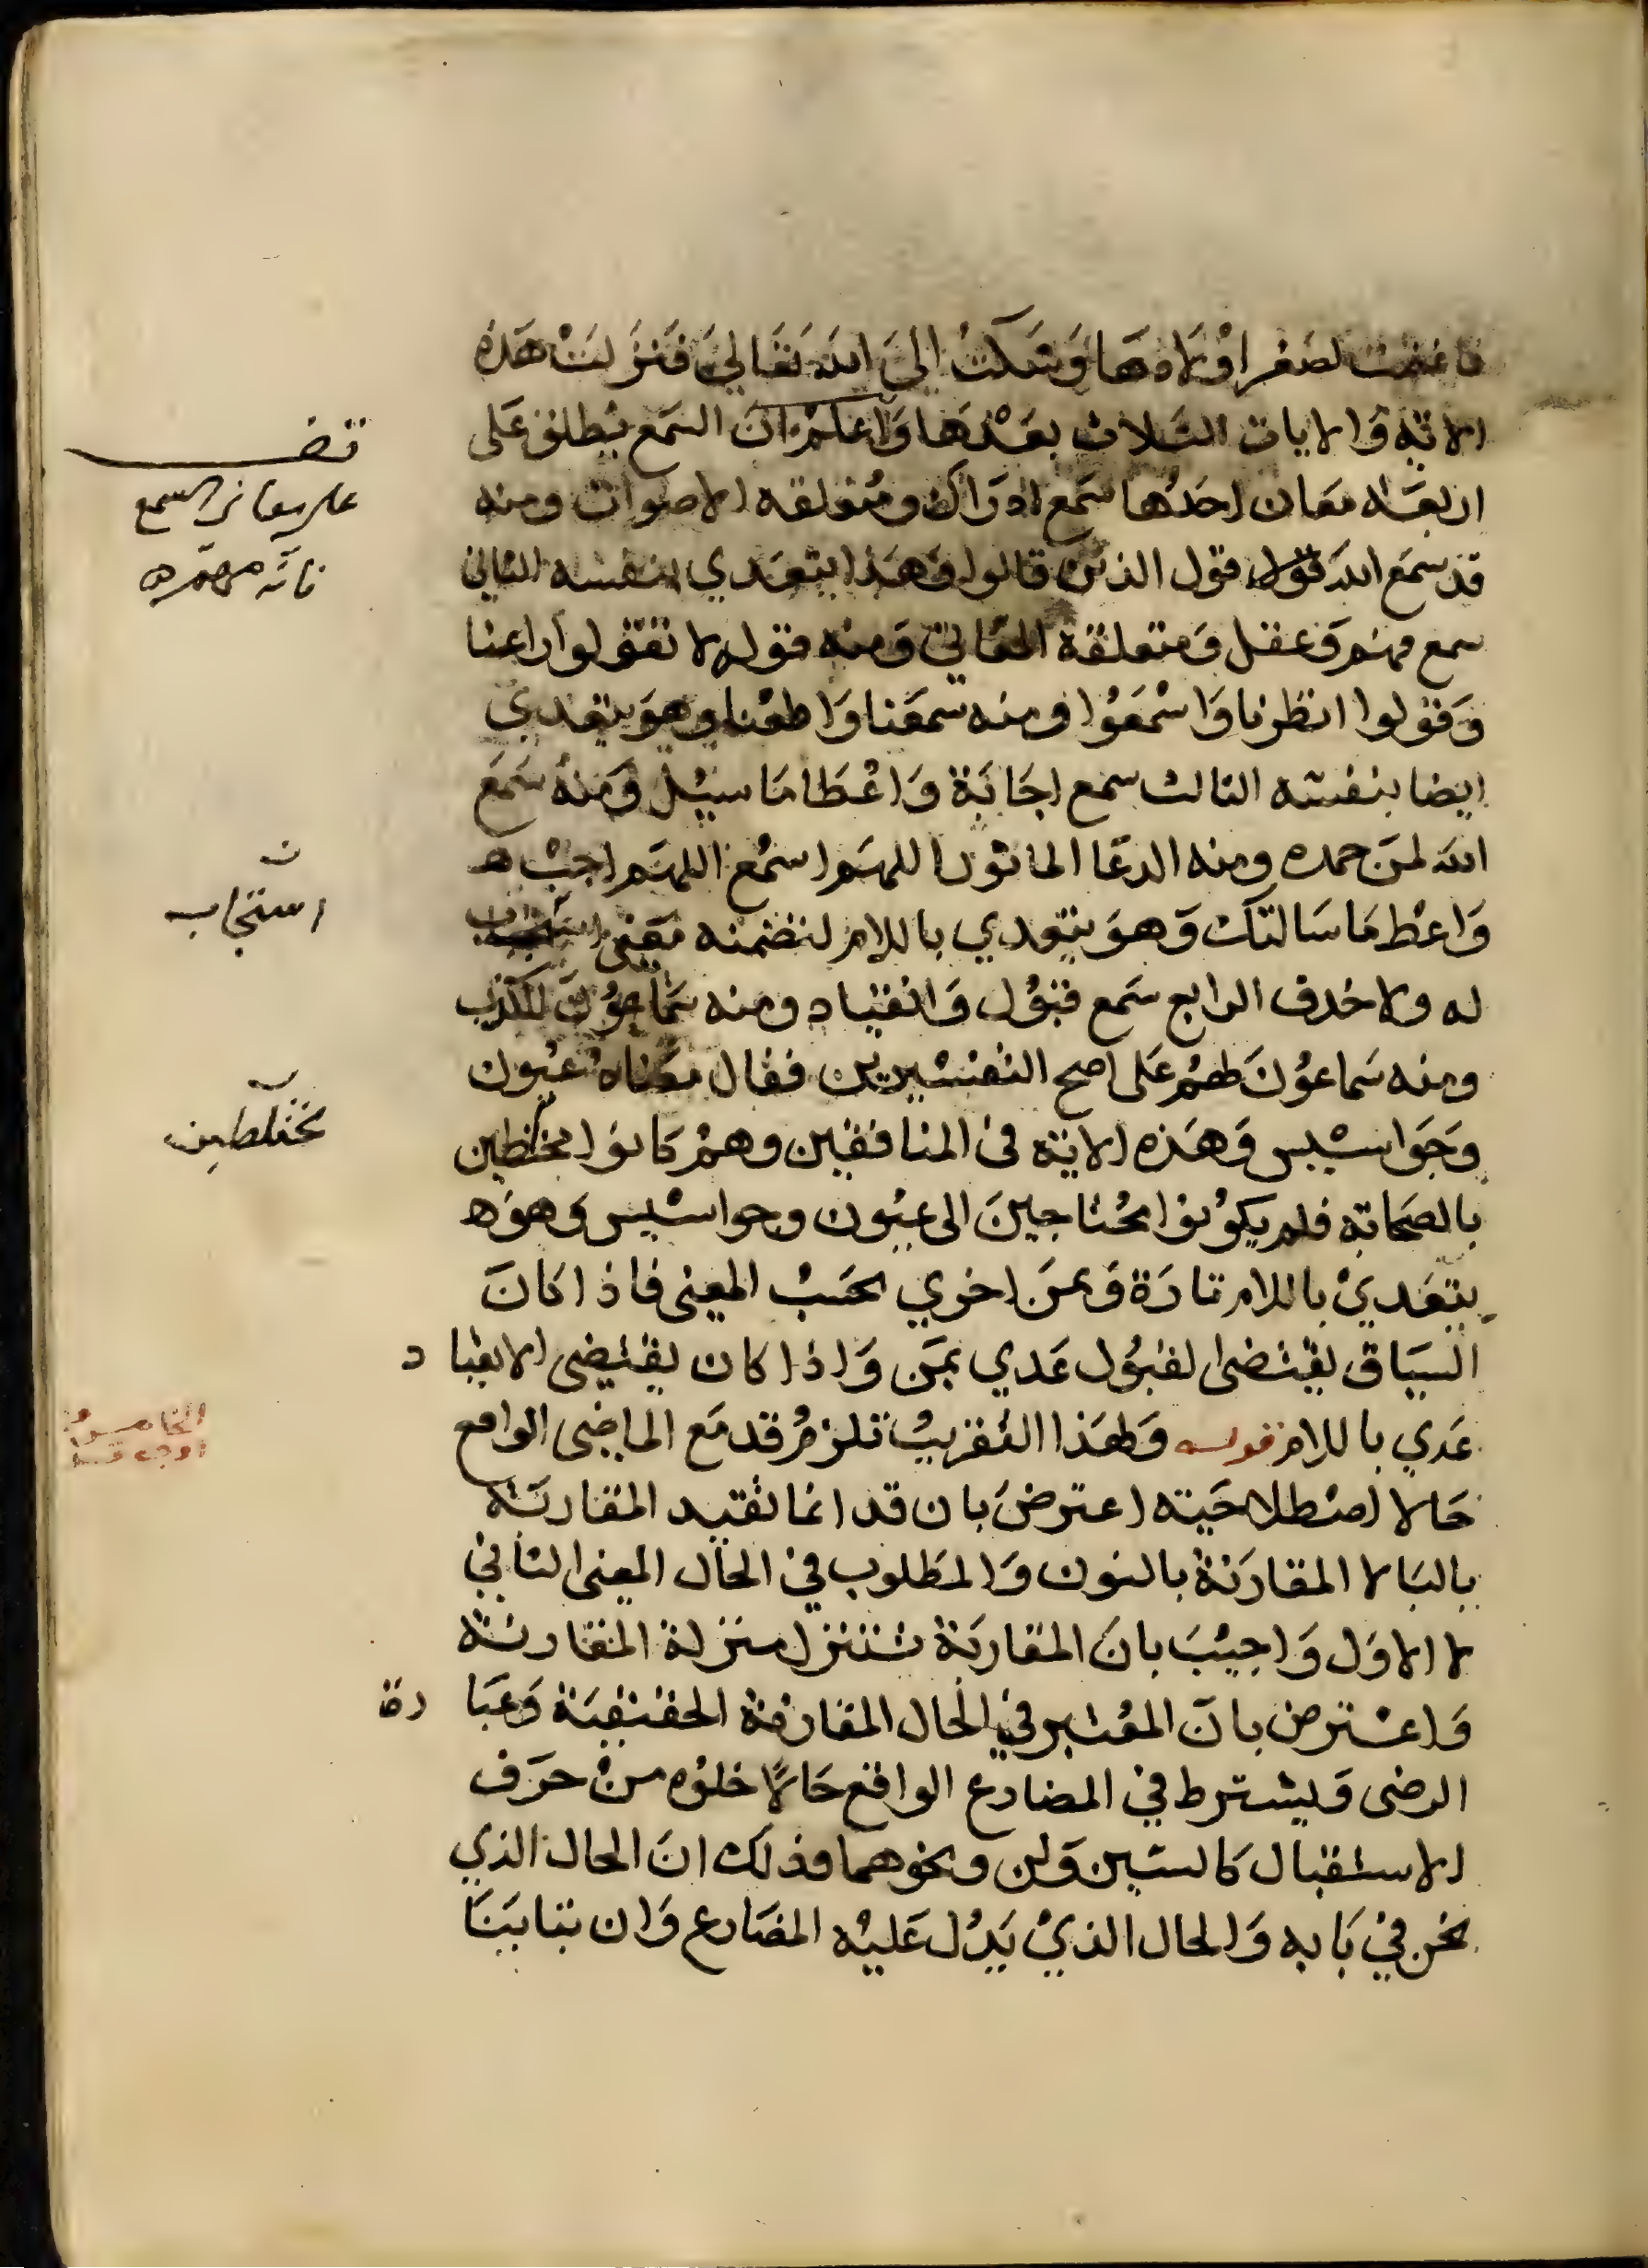 فاغتمت لصغر اولادها وشكت الى الله تعالى فنزلت هذه
الاية والايات الثلاث بعدها واعلم ان السمع يطلق على
اربعة معان احدها سمع ادراك ومتعلقه الاصوات ومنه
قد سمع الله قول قول الذين قالوا وهذا يتعدي بنفسه الثاني
سمع فهم وعقل ومتعلقه المعاني ومنه قوله لا تقولوا راعنا
وقولوا انظرنا واسمعوا ومنه سمعنا واطعنا وهو يتعدي
ايضا بنفسه الثالث سمع اجابة واعطا ما سيل ومنه سمع
الله لمن حمده ومنه الدعا الماثور اللهم اسمع اللهم اجب ه
واعط ما سالتك وهو يتعدي باللام لتضمنه معنى استجاب
له ولا حذف الرابع سمع قبول وانقياد ومنه سماعون للكذب
ومنه سماعون لهم على اصح التفسيرين فقال معناه عيون
وجواسيس وهذه الاية في المنافقين وهم كانوا مختلطين
بالصحابه فلم يكونوا محتاجين الى عيون وجواسيس وهو ه
يتعدي باللام تارة وبمن اخري بحسب المعنى فاذا كان
السياق يقتضى القبول عدي بمن واذا كان يقتضى الانقيا د
عدي باللام قوله ولهذا التقريب تلزم قد مع الماضى الواقع
حالا اصطلاحية اعترض بان قد انما تفيد المقاربة
بالبا لا المقارنة بالنون والمطلوب في الحال المعنى الثاني
لا الاول واجيب بان المقاربة تتنزل منزلة المقارنة
واعترض بان المعتبر في الحال المقارنة الحقيقية وعبا رة
الرضى ويشترط في المضارع الواقع حالا خلوه من حرف
الاستقبال كالسين ولن ونحوهما وذلك ان الحال الذي
نحن في بابه والحال الذي يدل عليه المضارع وان تباينا
قف
على معاني السمع
فانه مهم ه
ن
استجاب
ن
مختلطين
الخامس